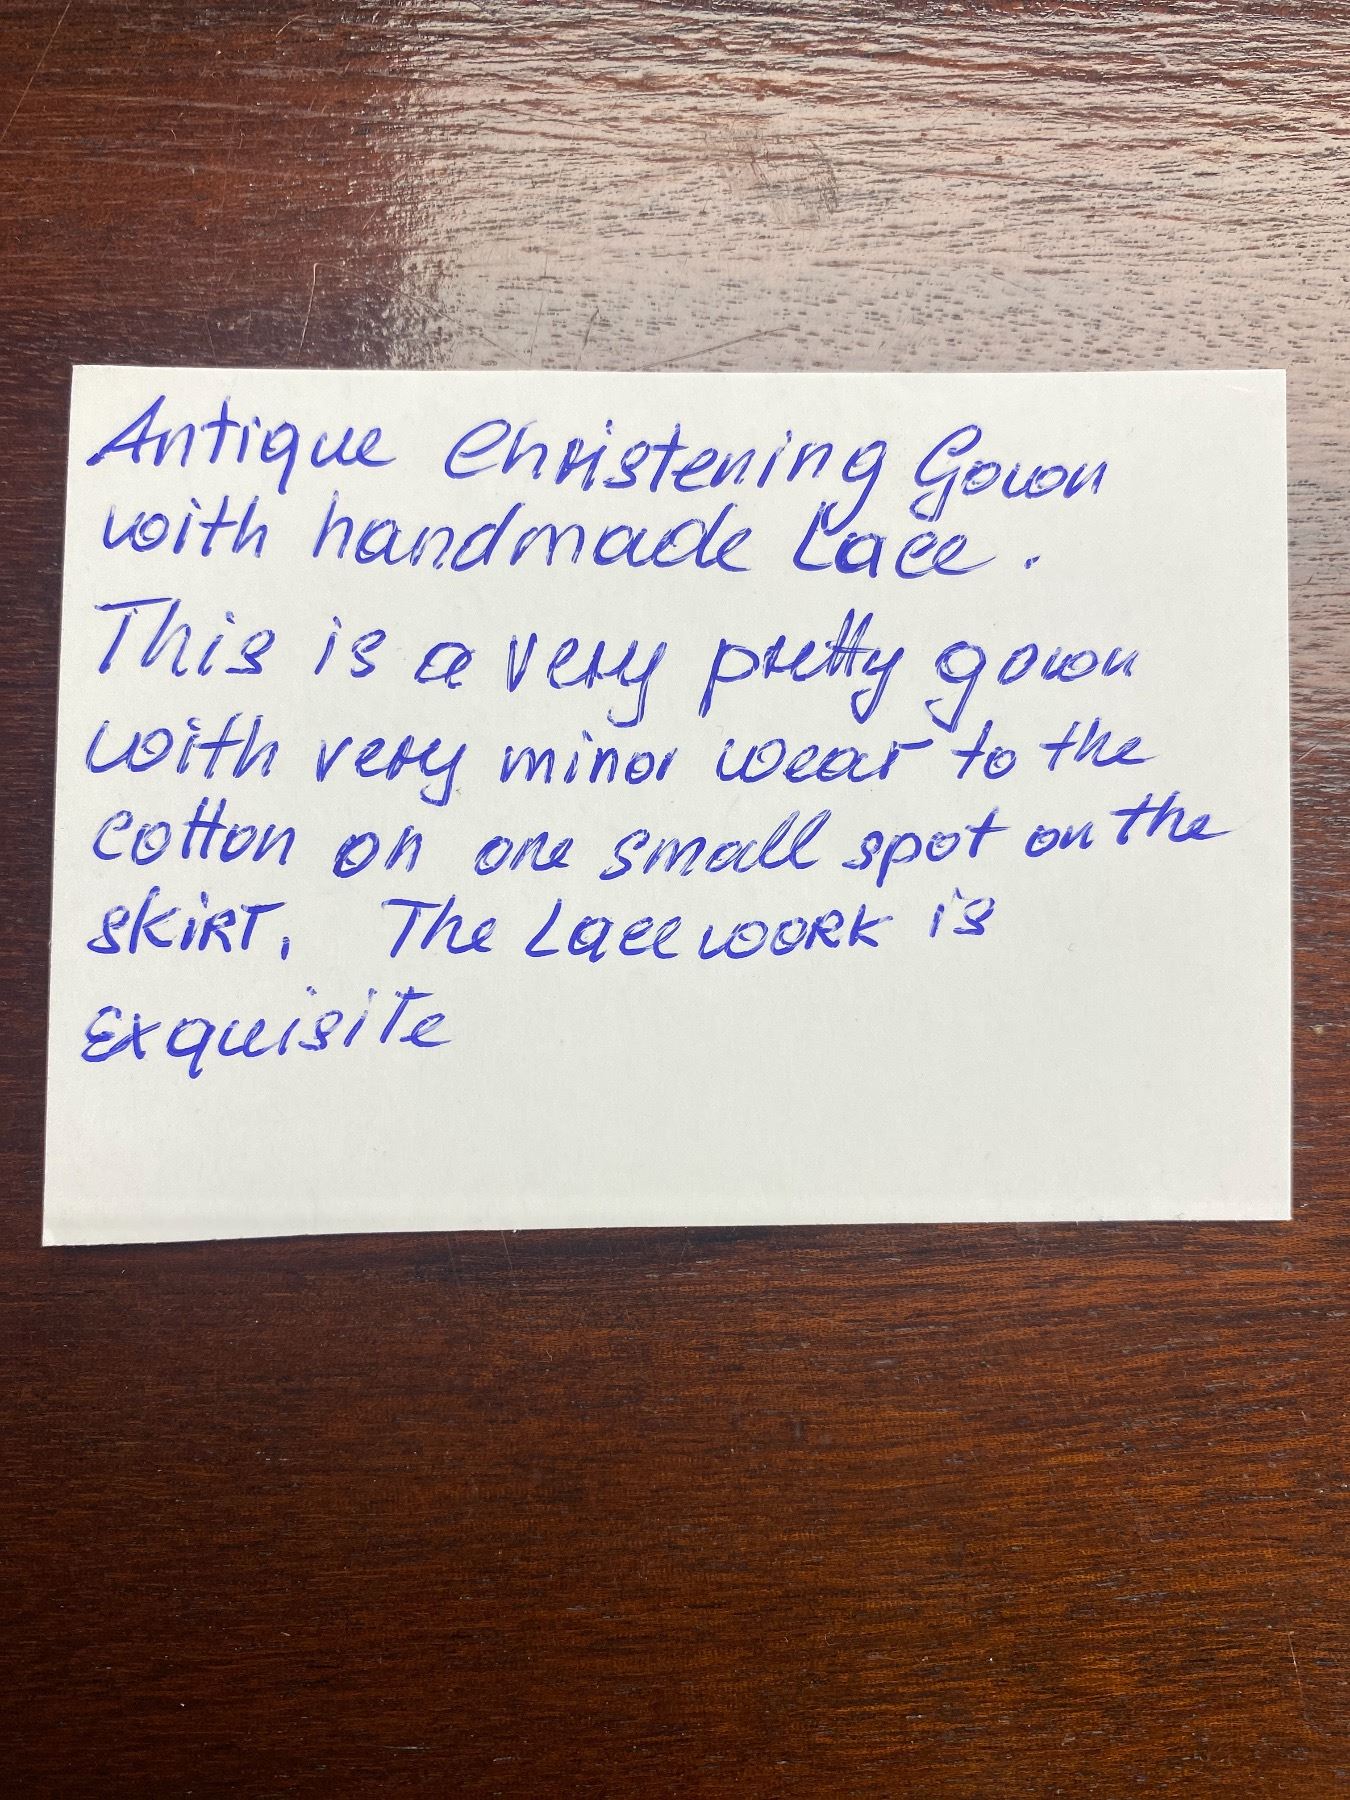 Antique Christening Gown
with handmade Lace.
This is a very pretty gown
with very minor wear to the
cotton on one small spot on the
skirt. The Lacework is
exquisite